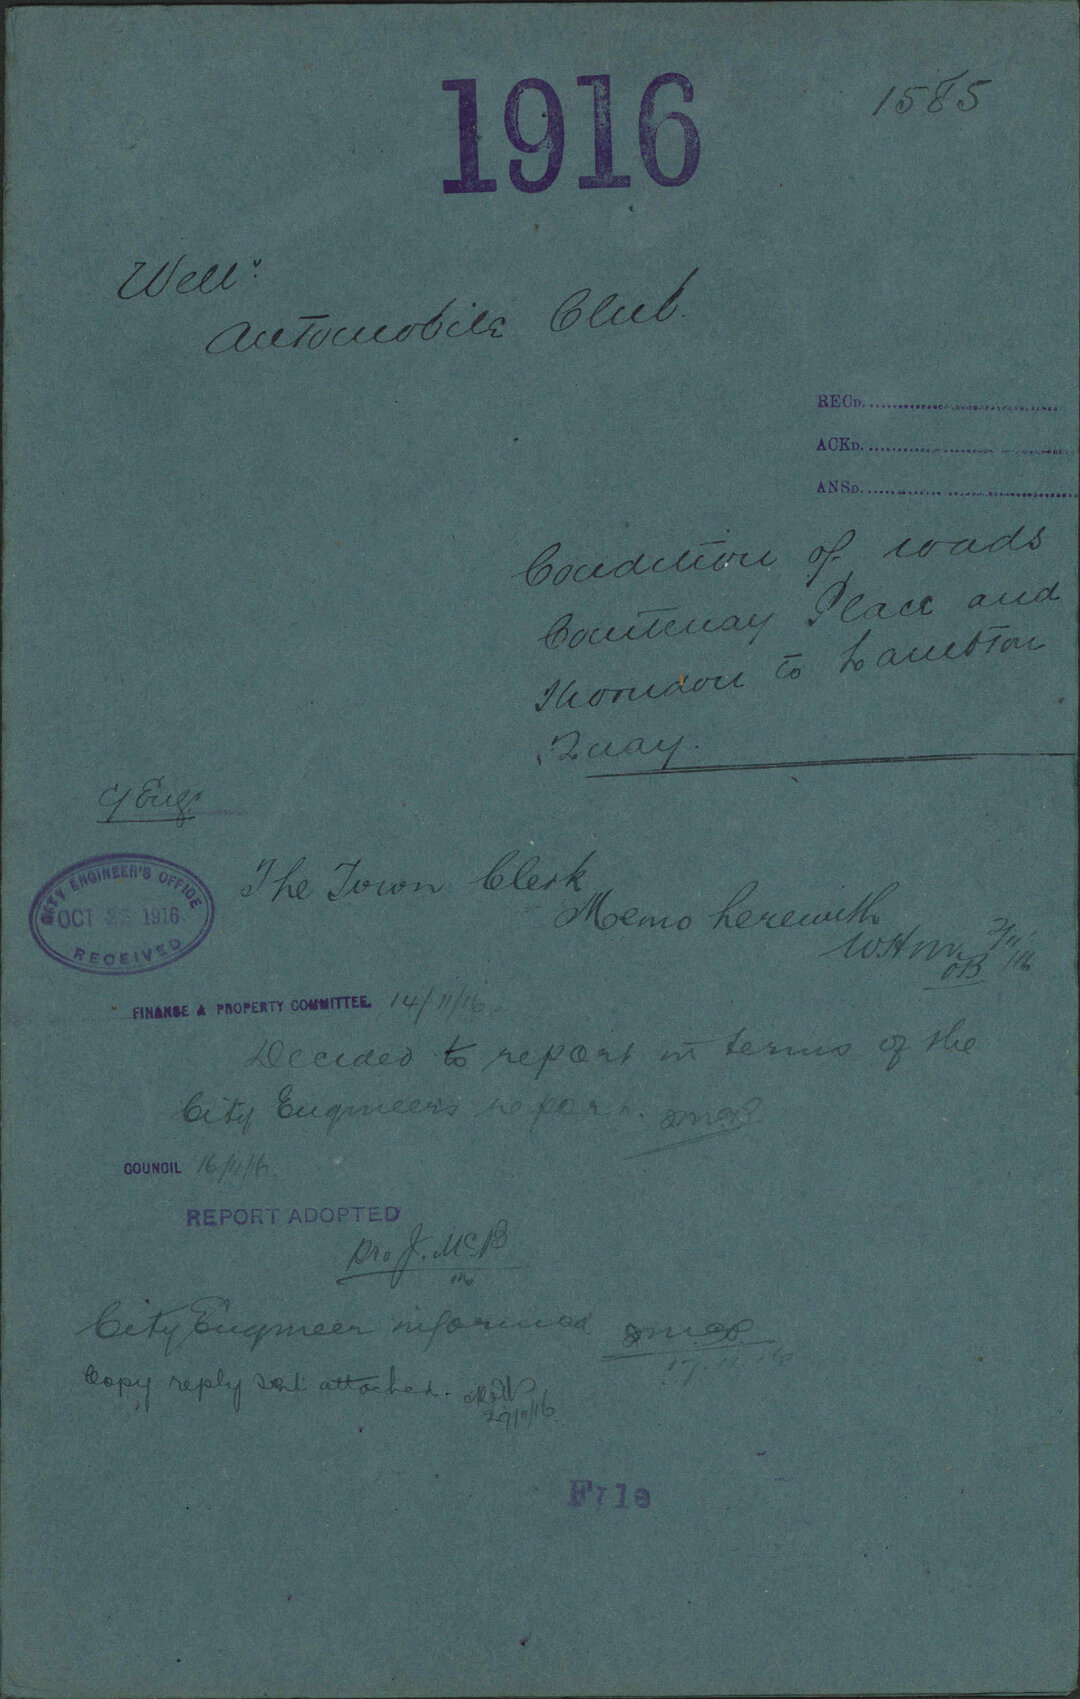 1916
1585
Well:
Automobile Club.
RECD.
ACKD.
ANSD.
Condition of roads
Courtenay Place and
Thorndon to Lambton
Quay.
C/ Engr
CITY ENGINEER'S OFFICE
OCT 1916
RECEIVED
The Town Clerk
Memo herewith
FINANCE & PROPERTY COMMITTEE. 14/11/16
Decided to report in terms of the
City Engineers report.
COUNCIL 16/11/16.
REPORT ADOPTED
pro J. McB
City Engineer informed
17.11.16
Copy reply sent attached.
File